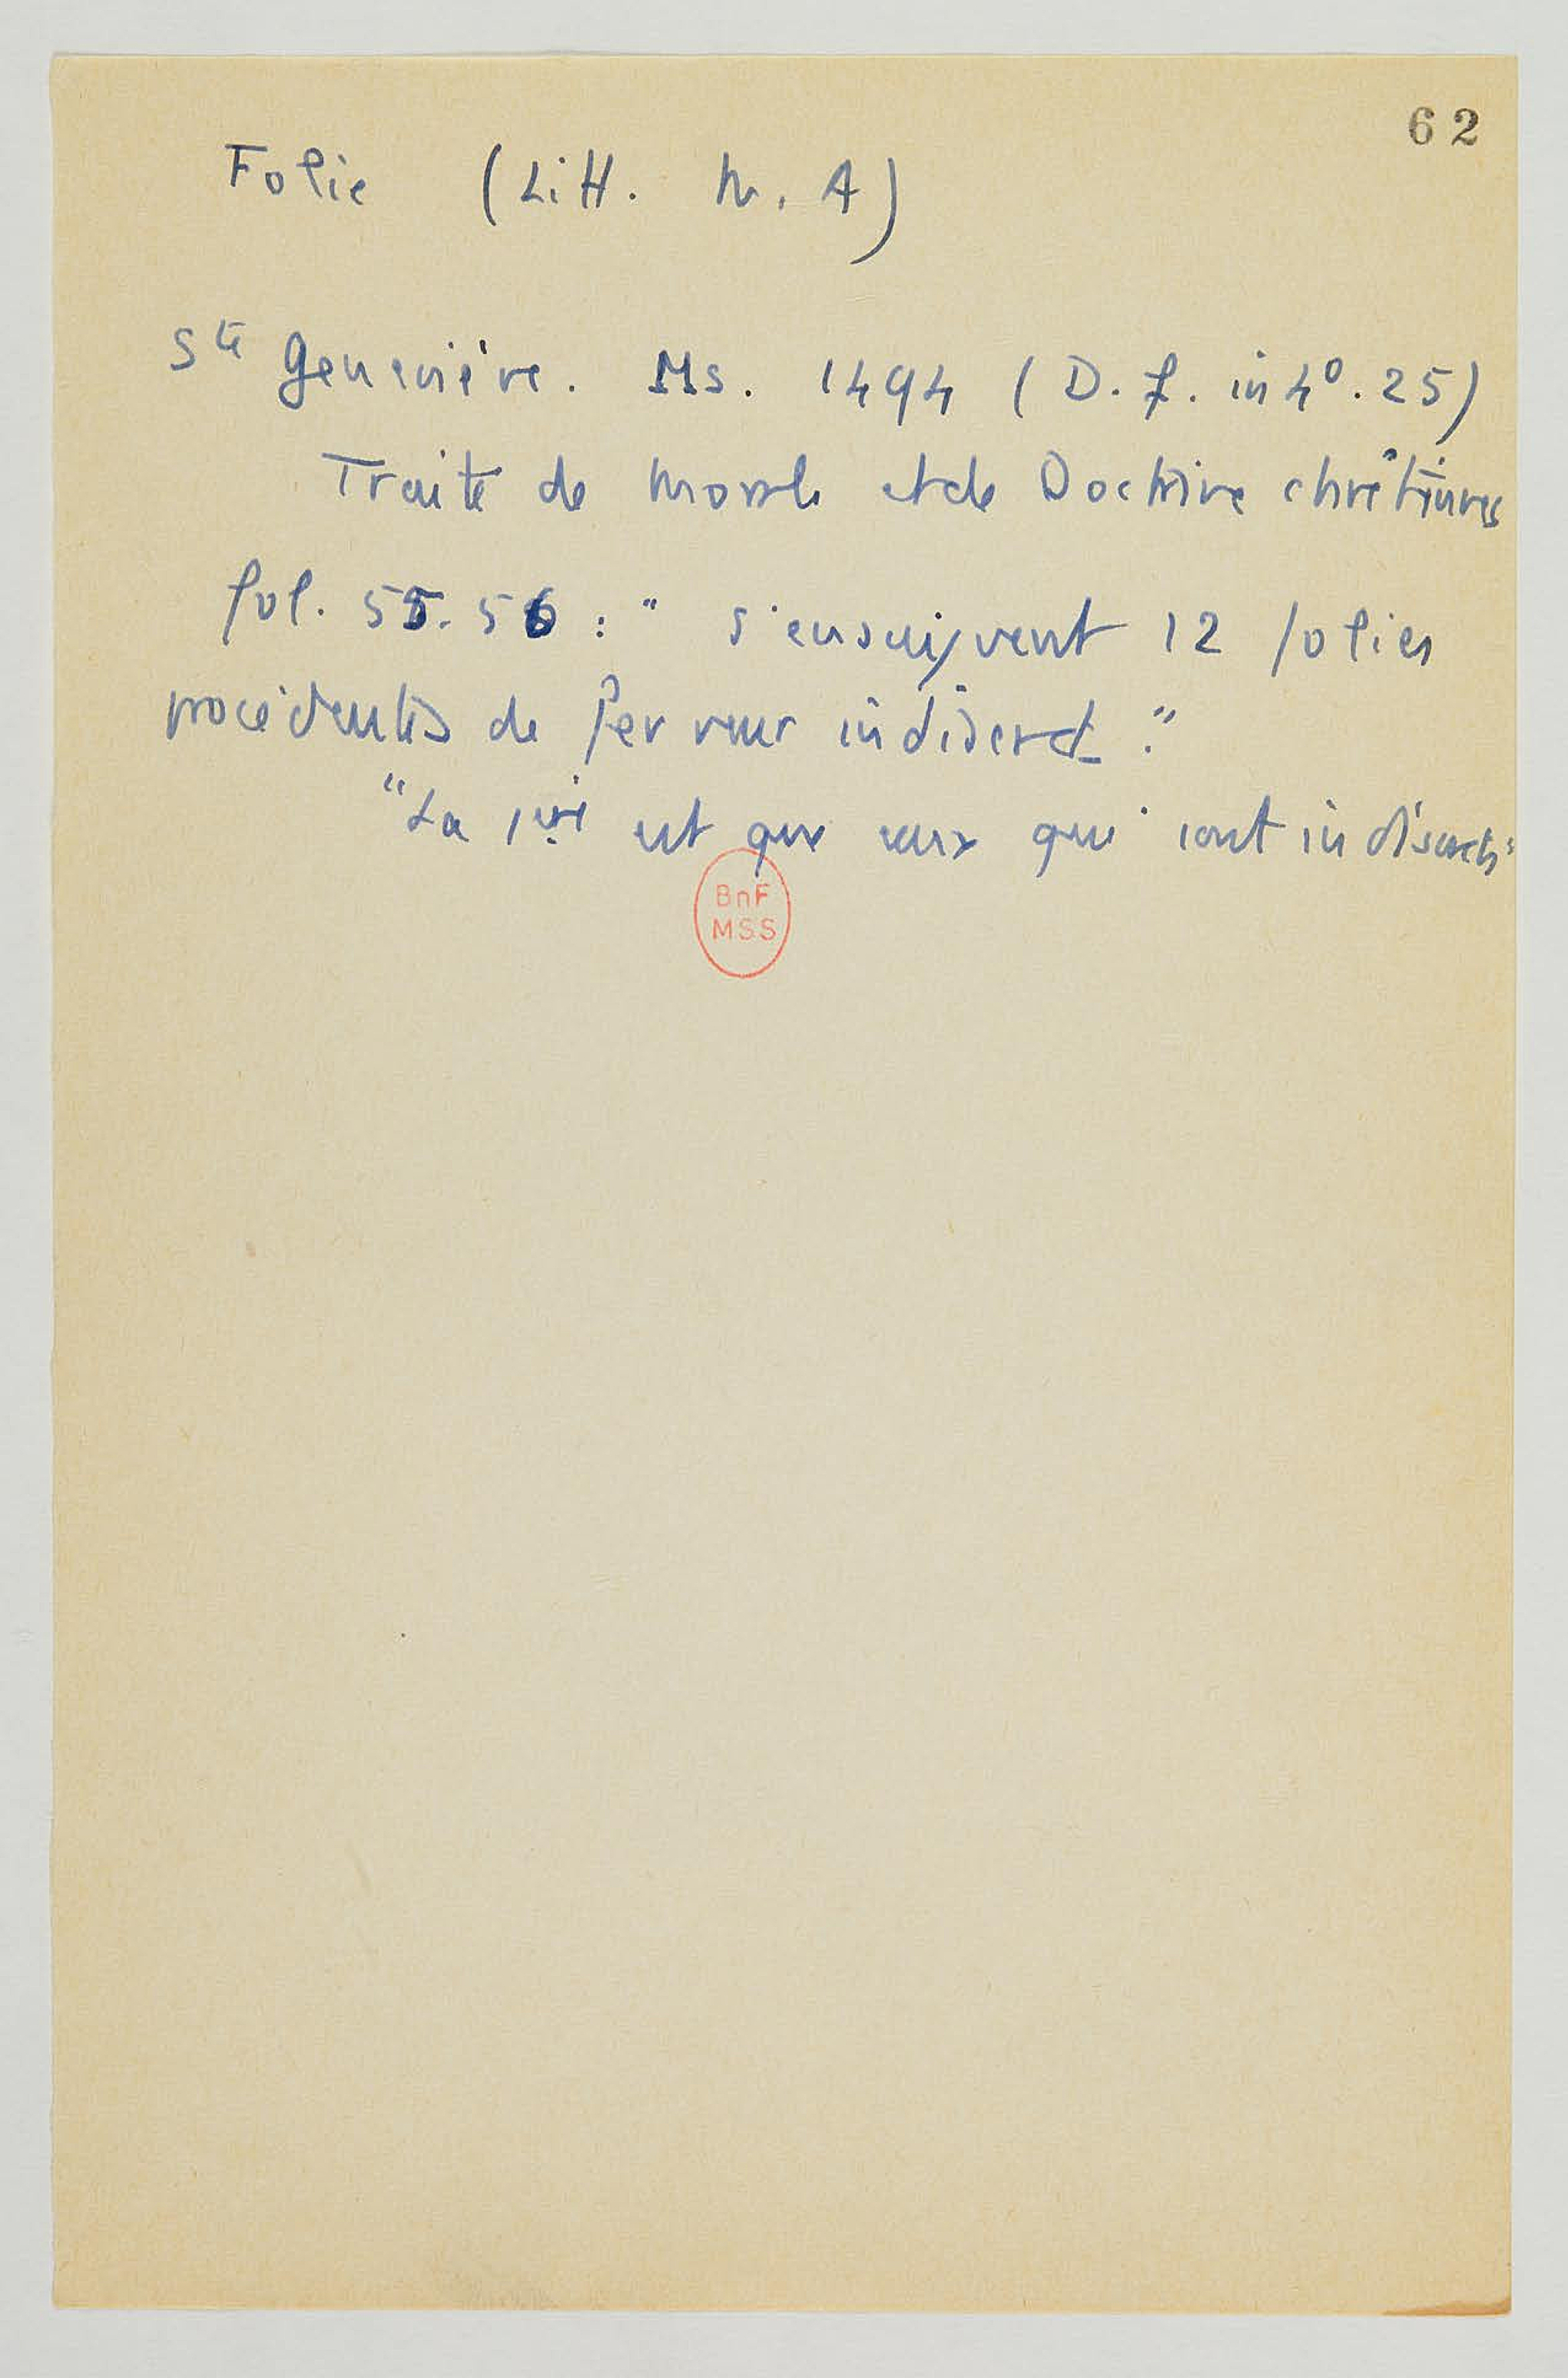 62
Folie (Litt. M. A)
Ste Geneviève. Ms. 1494 (D. f. in 4º. 25)
Traité de morale et de Doctrine chrétiennes
fol. 55.56 : " s'ensuyvent 12 folies
procédentes de ferveur indiscret."
"La 1ère est que ceux qui sont indiscrets
BnF
MSS